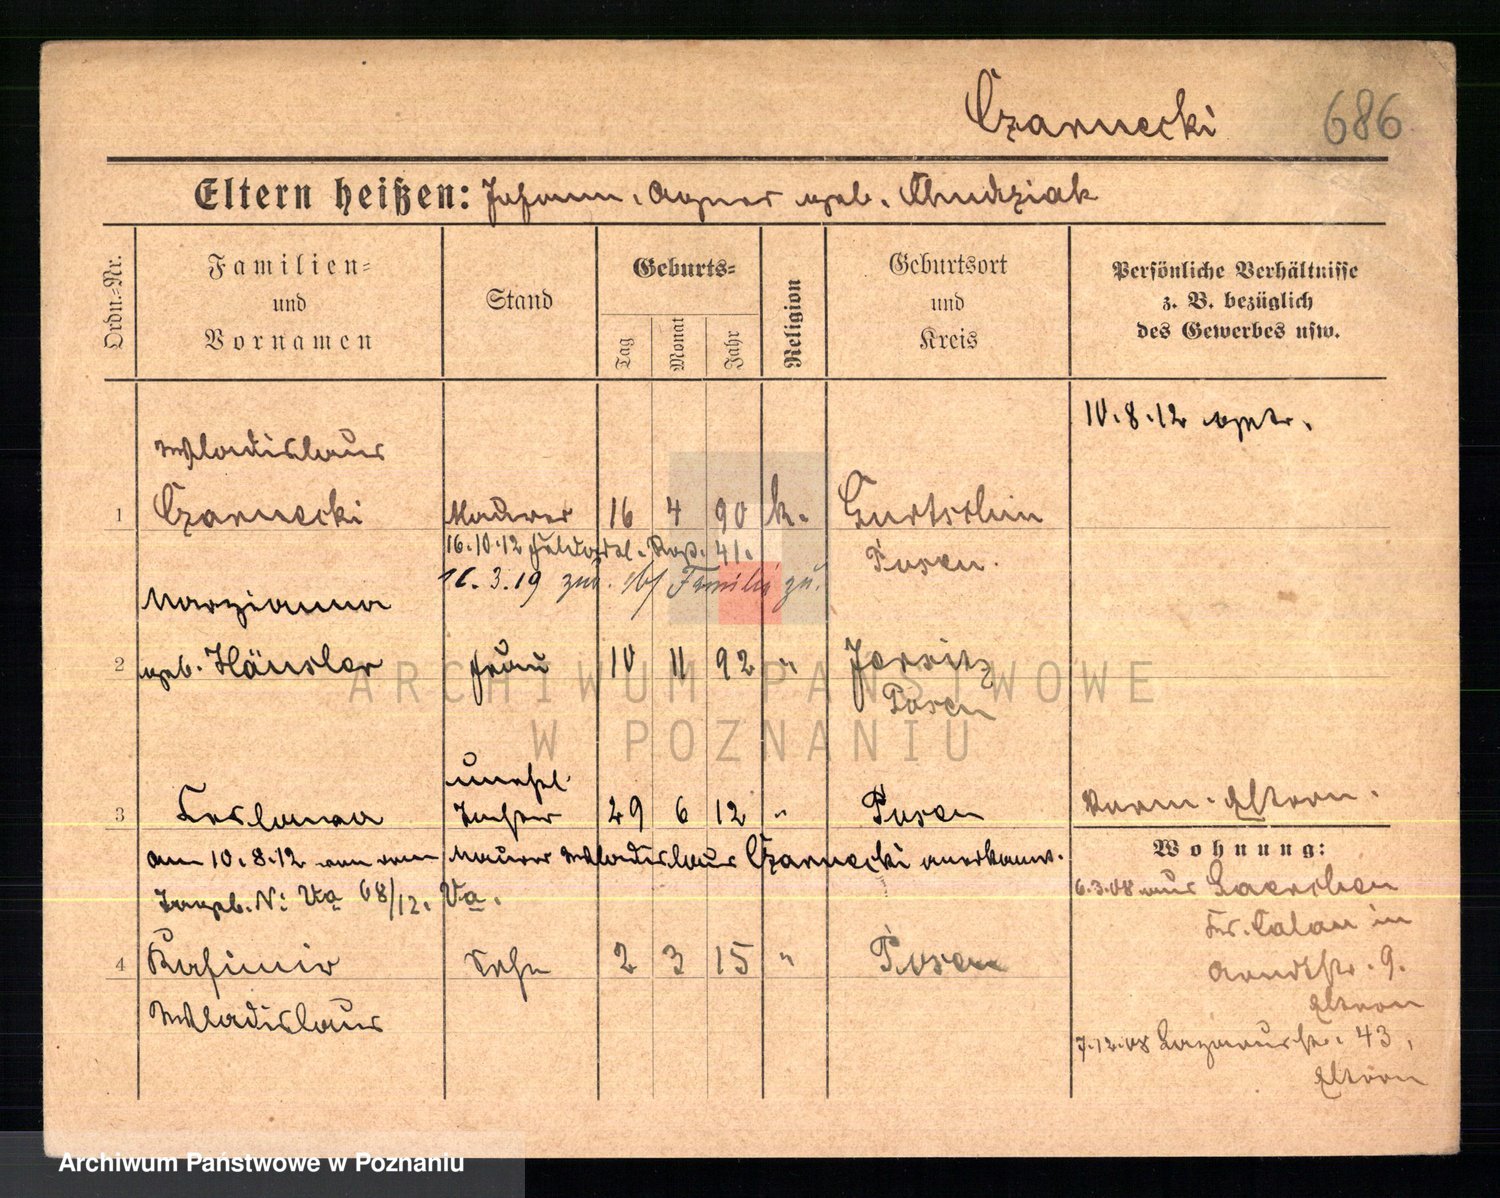 Czarnecki 686
Eltern heißen: Johann, Agnes geb. Chudziak
Ordn.-Nr.
Familien-
und
Vornamen
Stand
Geburts-
Tag
Monat
Jahr
Religion
Geburtsort
und
Kreis
Persönliche Verhältnisse
z. B. bezüglich
des Gewerbes usw.
10.8.12 getr.
Wladislaus
1 Czarnecki Maurer 16 4 90 k. Gurtschin
16.10.12 41. Posen.
16.3.19 Familie zu.
Marzianna
2 geb. Hänsler Frau 10 11 92 " Jersitz
Posen
unehl.
3 Tochter 29 6 12 " Posen Vorm. Eltern.
am 10.8.12 von dem Maurer Wladislaus Czarnecki anerkannt.
Tagb. N: Va 68/12. Va.
4 Kasimir Sohn 2 3 15 " Posen
Wladislaus
Wohnung:
6.3.08 aus
Kr. Calau in
Arndtstr. 9.
Eltern
7.12.08 Lazarusstr. 43,
Eltern
ARCHIWUM PAŃSTWOWE
W POZNANIU
Archiwum Państwowe w Poznaniu